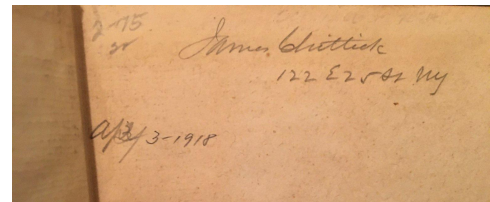 2-75
James Chittick
122 E 25 St NY
3-1918